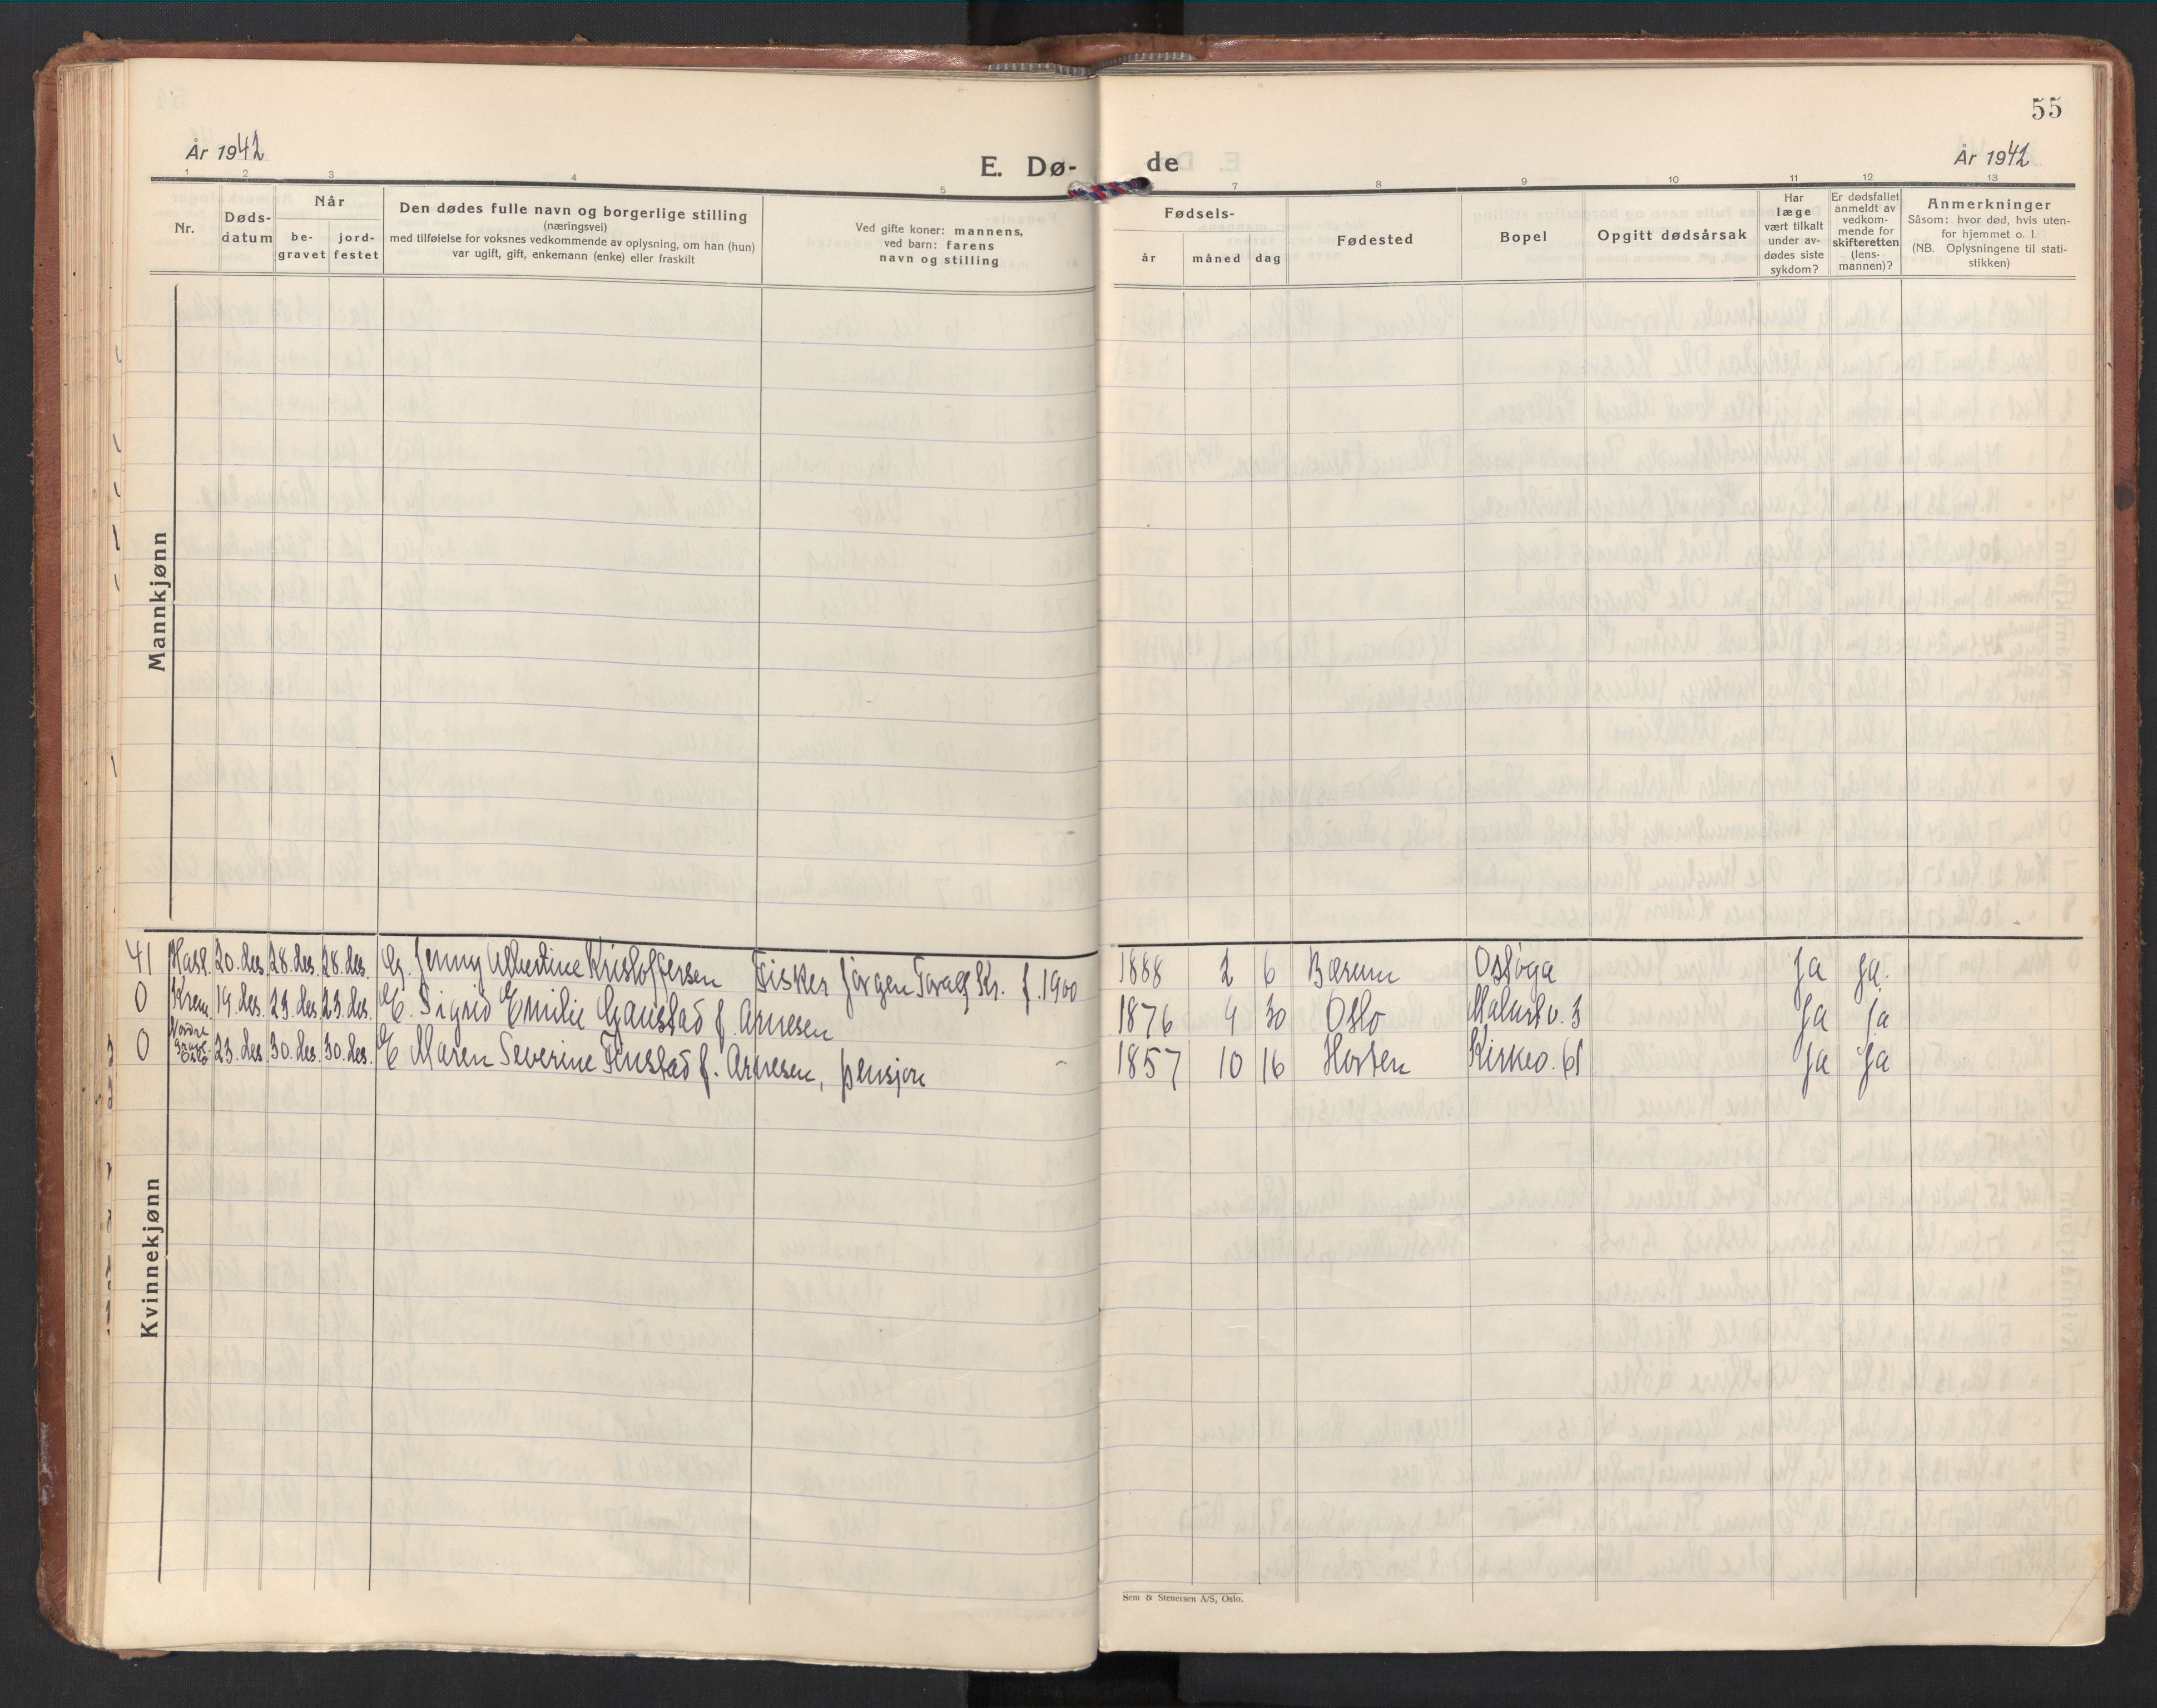 55
År 1942
E. Dø-
de
År 1942
1 2 3 4 5 7 8 9 10 11 12 13
Nr.
Døds-
datum
Når
be-
gravet
jord-
festet
Den dødes fulle navn og borgerlige stilling
(næringsvei)
med tilføielse for voksnes vedkommende av oplysning, om han (hun)
var ugift, gift, enkemann (enke) eller fraskilt
Ved gifte koner: mannens,
ved barn: farens
navn og stilling
Fødsels-
år
måned
dag
Fødested
Bopel
Opgitt dødsårsak
Har
læge
vært tilkalt
under av-
dødes siste
sykdom?
Er dødsfallet
anmeldt av
vedkom-
mende for
skifteretten
(lens-
mannen)?
Anmerkninger
Såsom: hvor død, hvis uten-
for hjemmet o. l.
(NB. Oplysningene til stati-
stikken)
Mannkjønn
41 Hasl. 20. des. 28. des. 28. des. G. Jenny Albertine Kristoffersen Fisker Jørgen Kr. f. 1900 1888 2 6 Bærum Ostøya Ja Ja.
0 Krem. 19. des. 23. des. 23. des. E. Sigrid Emilie Gaustad f. Arnesen 1876 4 30 Oslo 3 Ja Ja
0 Nordre Oslo 23. des. 30. des. 30. des. E Maren Severine Finstad f. Arnesen, pensjon - 1857 10 16 Horten Kirkev. 61 Ja Ja
Kvinnekjønn
Sem & Stenersen A/S, Oslo.